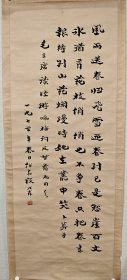 風雨送春归飛雪迎春到已是悬崖百丈
冰猶有花枝俏俏也不争春只把春来
報待到山花爛漫時她在叢中笑 卜算子
毛主席读陸游咏梅词反其意而用之
一九 年春日